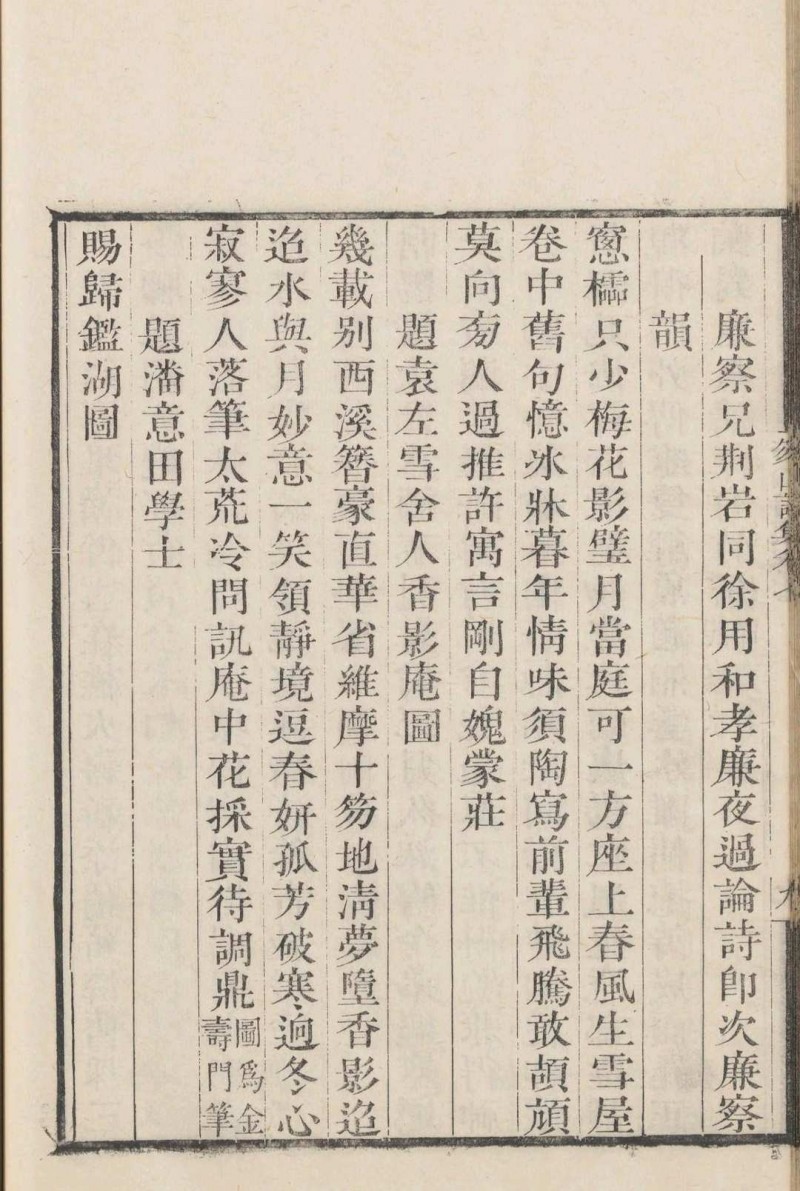 廉察兄荆岩同徐用和孝廉夜過論詩卽次廉察
韻
窻櫺只少梅花影璧月當庭可一方座上春風生雪屋
卷中舊句憶氷牀暮年情味須陶寫前輩飛騰敢頡頏
莫向旁人過推許寓言剛自媿蒙莊
題袁左雪舍人香影庵圖
幾載别西溪簪豪直華省維摩十笏地淸夢墮香影迨
迨水與月妙意一笑領靜境逗春妍孤芳破寒逈冬心
寂寥人落筆太荒冷問訊庵中花採實待調鼎圖爲金
壽門筆
題潘意田學士
賜歸鑑湖圖
九